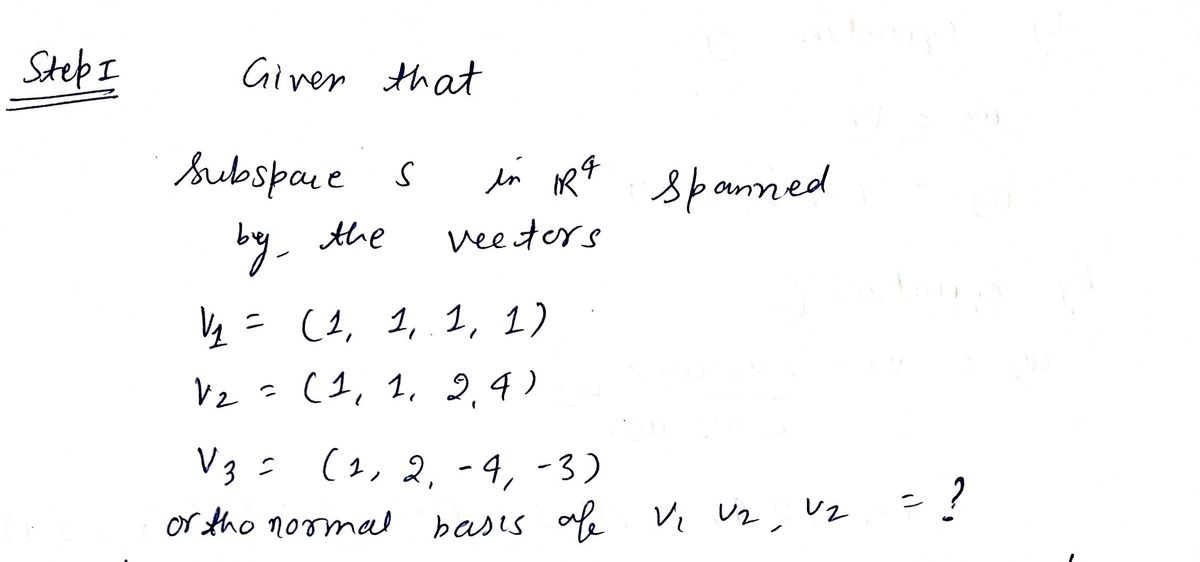 Step I Given that
Subspace S in ℝ⁴ spanned
by the vectors
V₁ = (1, 1, 1, 1)
V₂ = (1, 1, 2, 4)
V₃ = (1, 2, -4, -3)
orthonormal basis of V₁ V₂, V₂ = ?